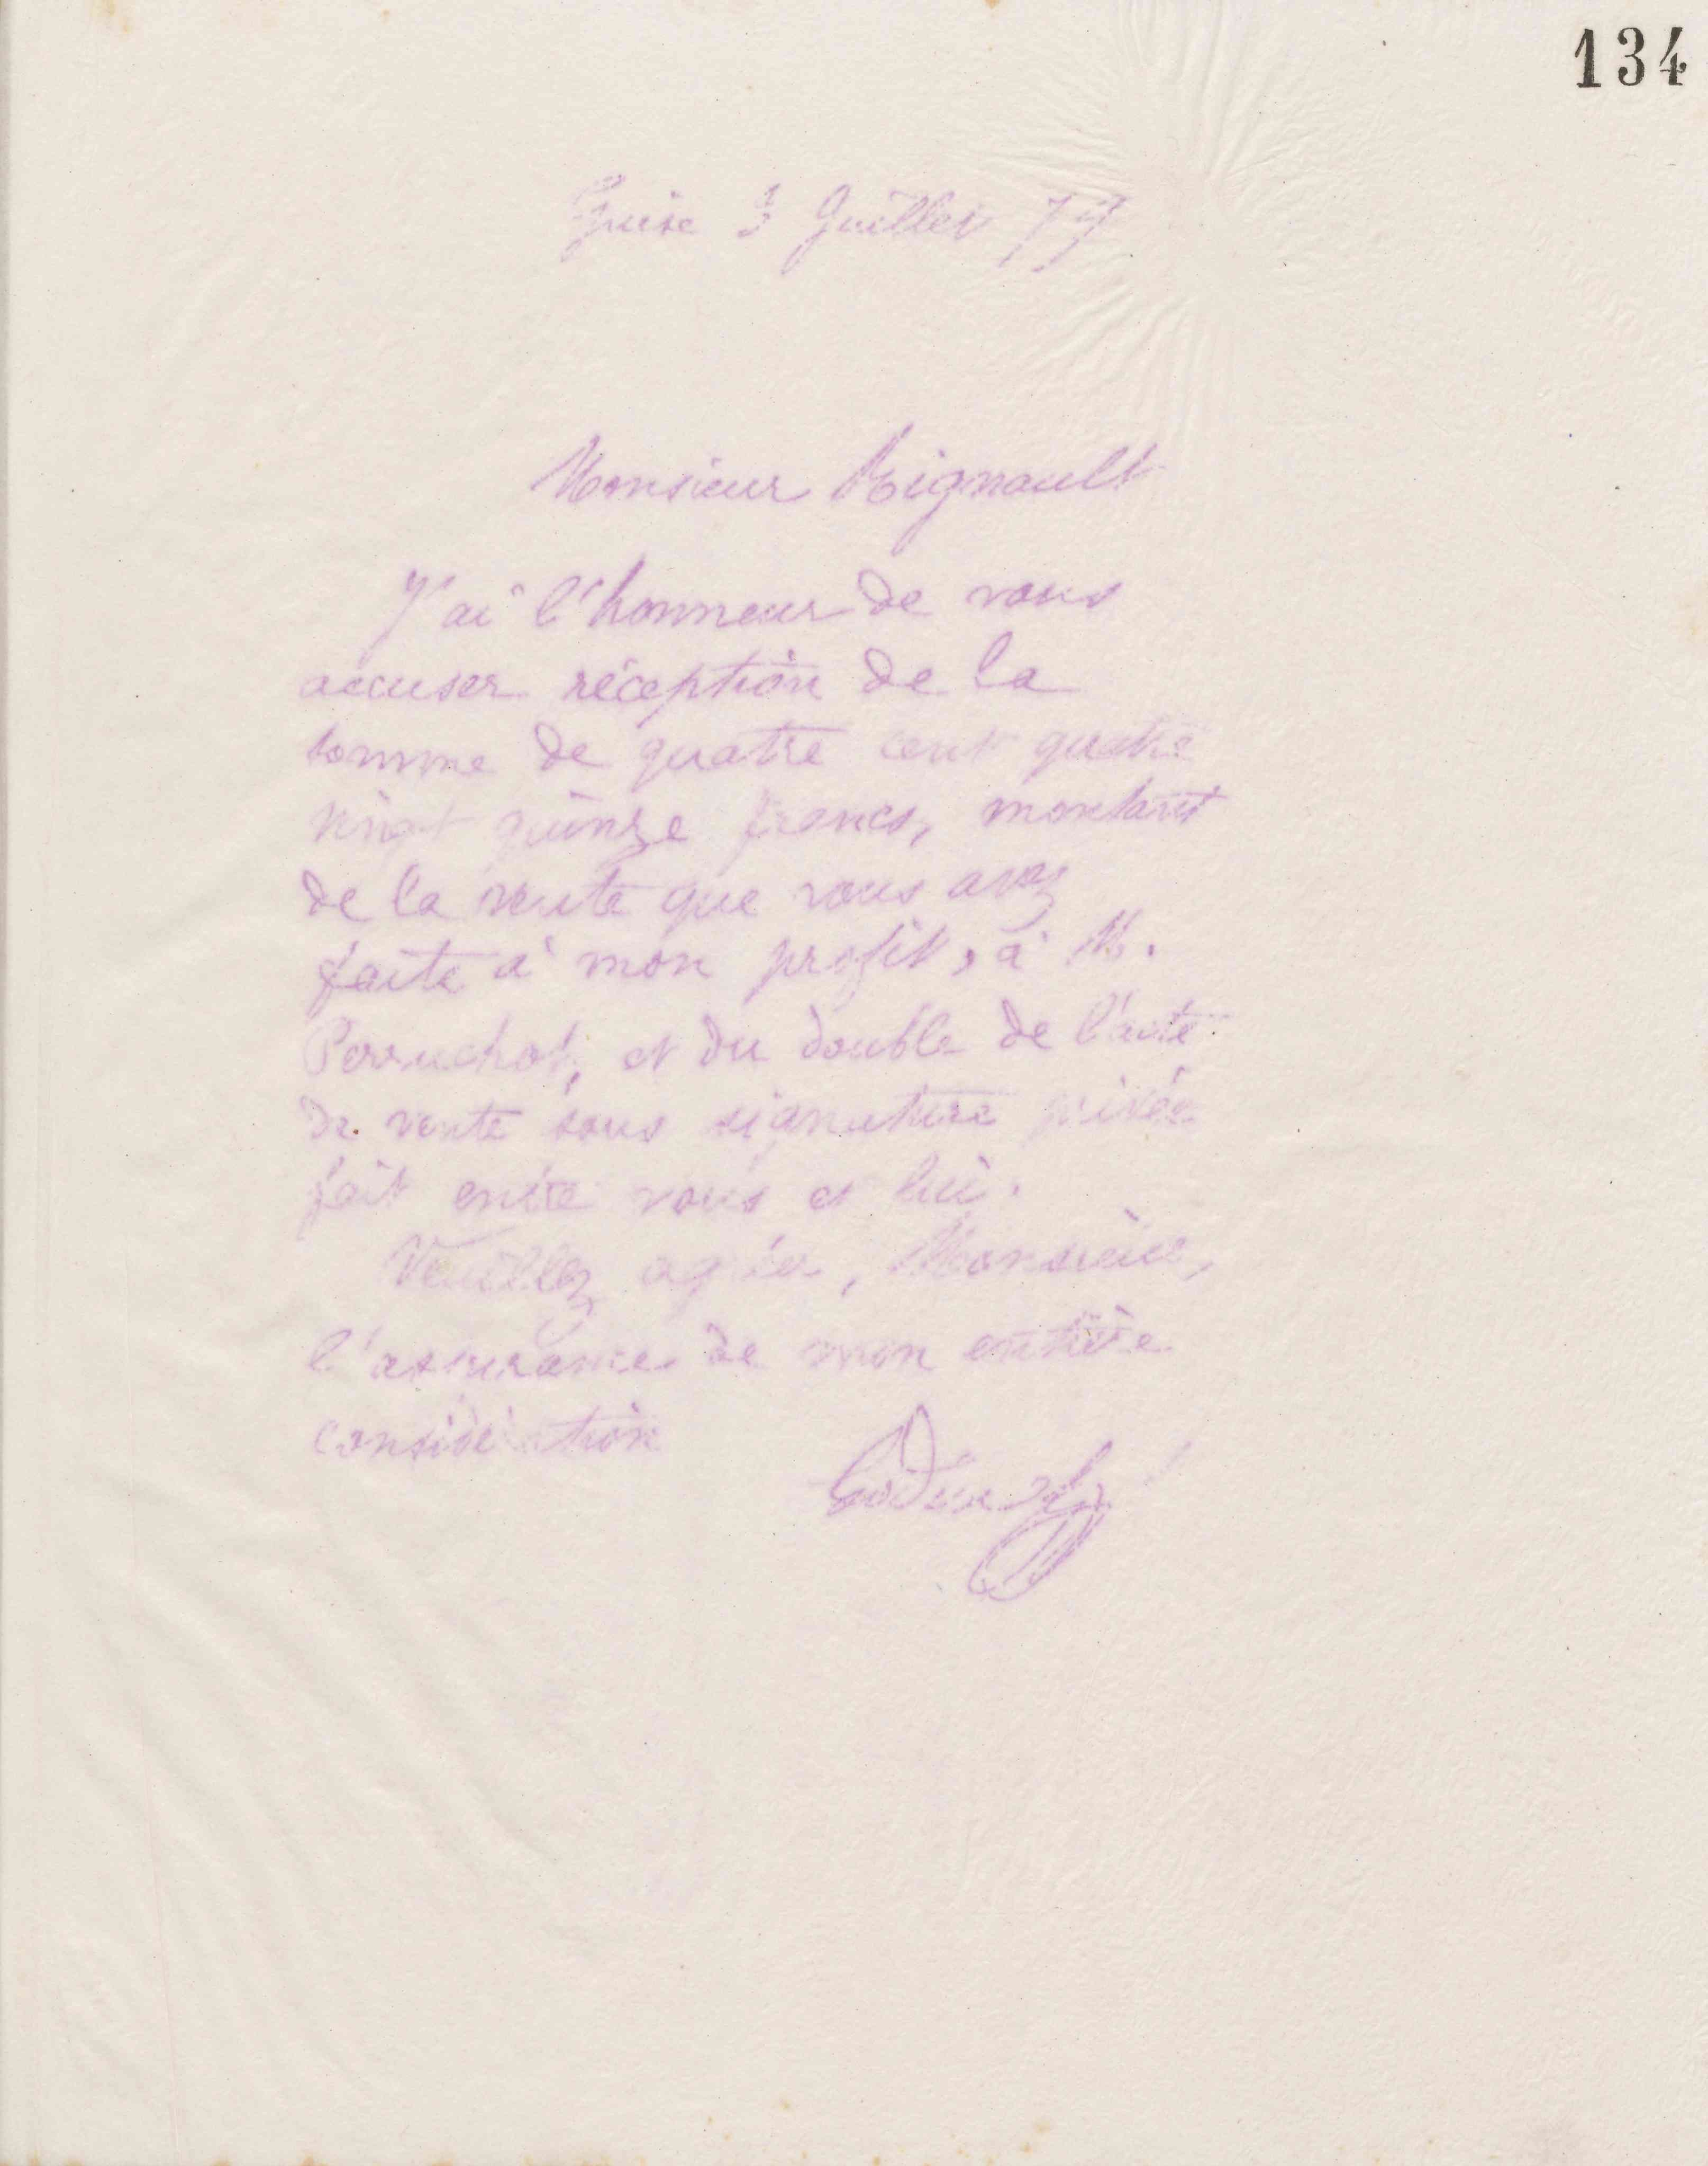 134
Guise 3 Juillet 77
Monsieur Rignault
J'ai l'honneur de vous
accuser réception de la
somme de quatre cent quatre
vingt quinze francs, montant
de la vente que vous avez
faite à mon profit, à M.
Perruchot, et du double de l'acte
de vente sous signature privée
fait entre vous et lui.
Veuillez agréer, Monsieur,
l'assurance de mon entière
considération
Godin